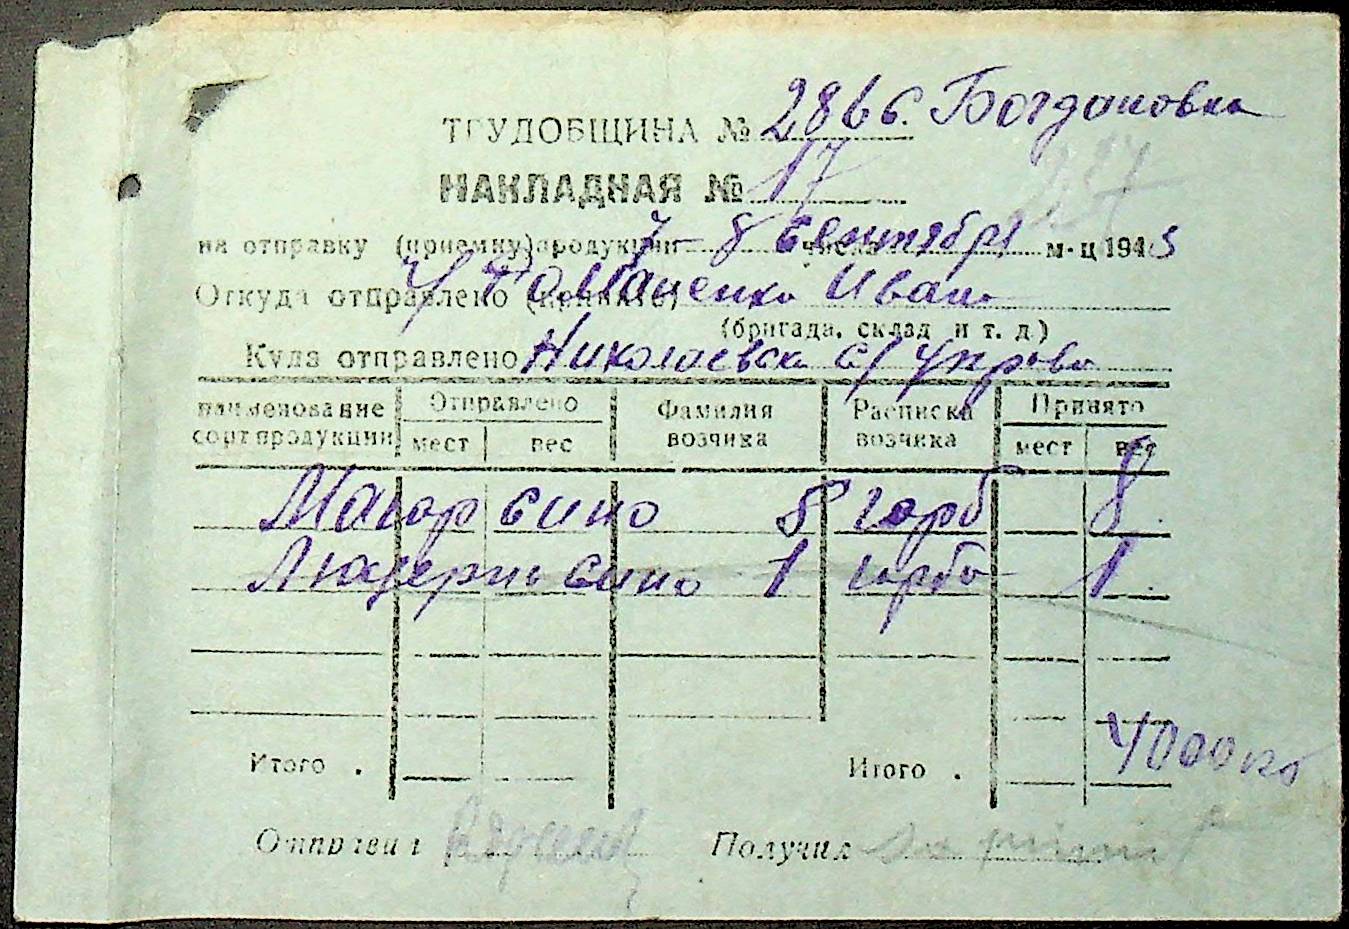 ТРУДОБЩИНА № 286 с. Богдановка
НАКЛАДНАЯ № 17
227
на отправку (приемку) продукции 7-8 числа сентября м-ц 1943
Откуда отправлено (принято) У Романенко Ивана
(бригада, склад и т. д.)
Куда отправлено Николаевска с/управа
наименование сорт продукции Отправлено Фамилия возчика Расписка возчика Принято
мест вес мест вес
Магар сино 8 гарб 8
Люцерны сино 1 гарба 1.
Итого . Итого . 4000 кг
Отправил Получил